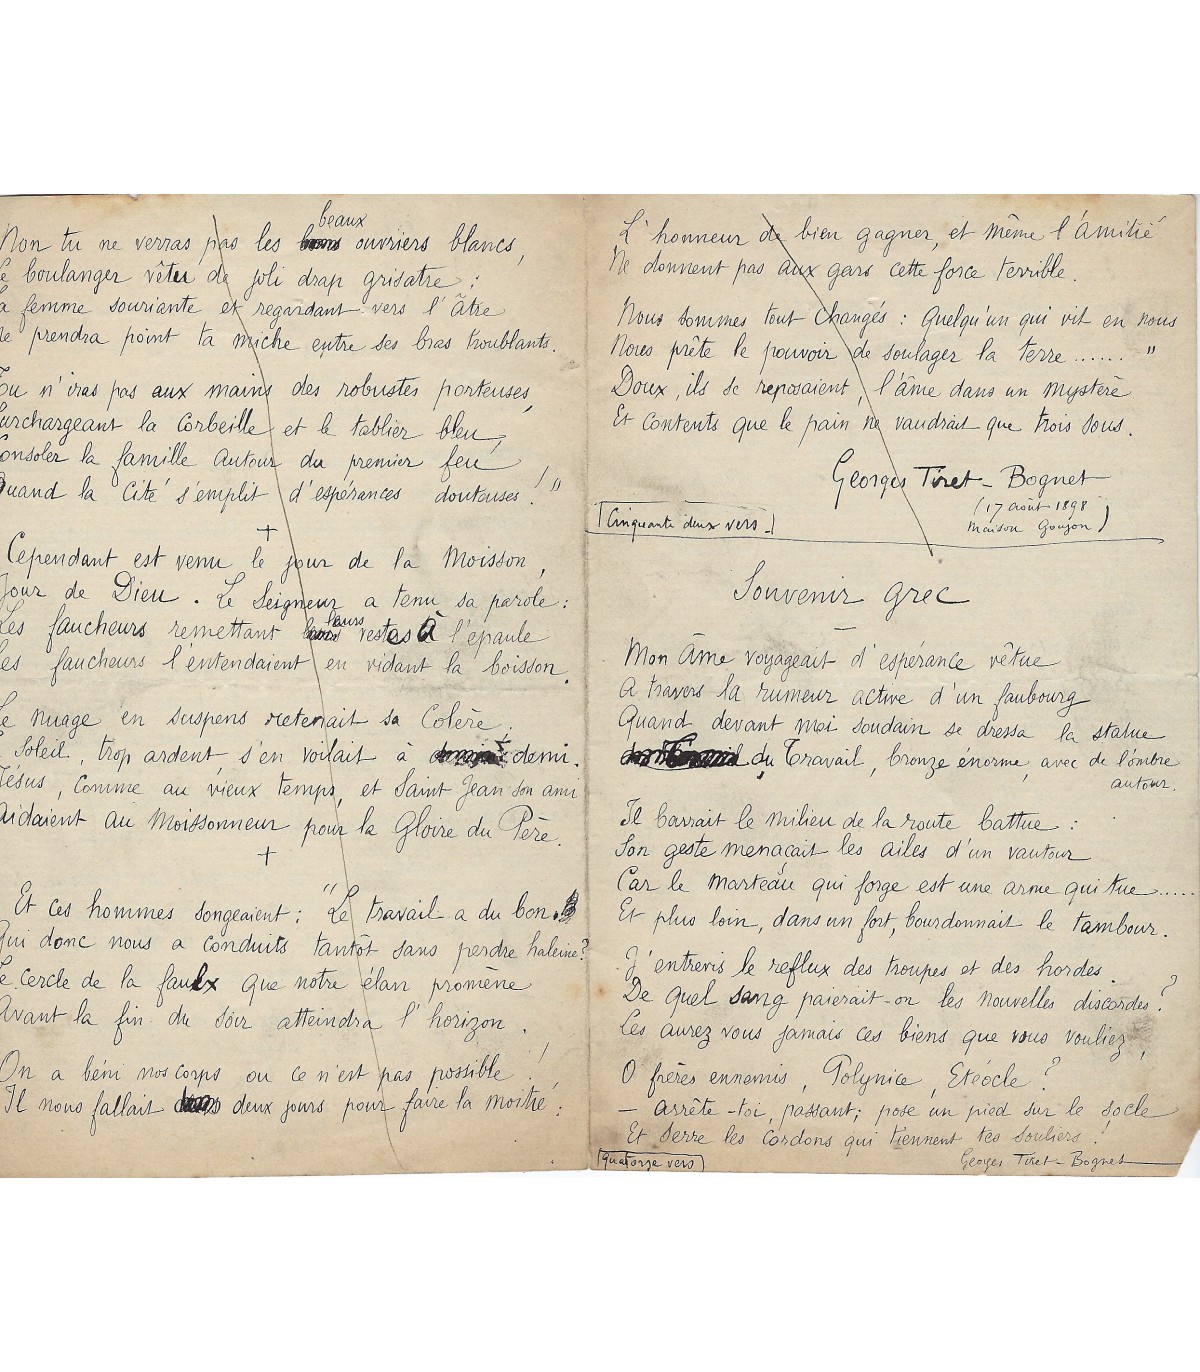 Non tu ne verras pas les beaux ouvriers blancs,
Le boulanger vêtu de joli drap grisatre :
La femme souriante et regardant vers l'Âtre
Ne prendra point ta miche entre ses bras troublants.
Tu n'iras pas aux mains des robustes porteuses,
Surchargeant la Corbeille et le tablier bleu,
Consoler la famille autour du premier feu
Quand la Cité s'emplit d'espérances douteuses ! "
+
Cependant est venu le jour de la Moisson,
Jour de Dieu. Le Seigneur a tenu sa parole :
Les faucheurs remettant leurs vestes à l'épaule
Les faucheurs l'entendaient en vidant la boisson.
Le nuage en suspens retenait sa Colère.
Soleil, trop ardent, s'en voilait à demi.
Jésus, comme au vieux temps, et Saint Jean son ami
Aidaient au Moissonneur pour la Gloire du Père.
+
Et ces hommes songeaient : "Le travail a du bon.
Qui donc nous a conduits tantôt sans perdre haleine ?
Le cercle de la faulx que notre élan promène
Avant la fin du soir atteindra l'horizon.
On a béni nos corps ou ce n'est pas possible !
Il nous fallait deux jours pour faire la moitié ;
L'honneur de bien gagner, et même l'Amitié
Ne donnent pas aux gars cette force terrible.
Nous sommes tout changés : Quelqu'un qui vit en nous
Nous prête le pouvoir de soulager la terre...... "
Doux, ils se reposaient, l'âme dans un mystère
Et Contents que le pain ne vaudrait que trois sous.
Georges Tiret-Bognet
(17 août 1898
Maison Goujon)
Cinquante deux vers.
Souvenir Grec
Mon Âme voyageait d'espérance vêtue
A travers la rumeur active d'un faubourg
Quand devant moi soudain se dressa la statue
du Travail, bronze énorme, avec de l'ombre
autour.
Il barrait le milieu de la route battue :
Son geste menaçait les ailes d'un vautour
Car le Marteau qui forge est une arme qui tue.....
Et plus loin, dans un fort, bourdonnait le tambour.
J'entrevis le reflux des troupes et des hordes.
De quel sang paierait-on les nouvelles discordes ?
Les aurez vous jamais ces biens que vous vouliez,
O frères ennemis, Polynice, Etéocle ?
— Arrête-toi, passant ; pose un pied sur le socle
Et serre les cordons qui tiennent tes souliers !
Georges Tiret-Bognet
Quatorze vers